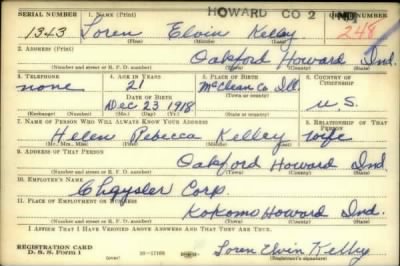 HOWARD CO 2
SERIAL NUMBER 1. NAME (Print) ORDER NUMBER
1343 Loren Elvin Kelley 248
(First) (Middle) (Last)
2. ADDRESS (Print)
Oakford Howard Ind.
(Number and street or R. F. D. number) (Town) (County) (State)
3. TELEPHONE 4. AGE IN YEARS 5. PLACE OF BIRTH 6. COUNTRY OF CITIZENSHIP
none 21 McClean Co
DATE OF BIRTH (Town or county)
Dec 23 1918 Ill. U.S.
(Exchange) (Number) (Mo.) (Day) (Yr.) (State or country)
7. NAME OF PERSON WHO WILL ALWAYS KNOW YOUR ADDRESS 8. RELATIONSHIP OF THAT PERSON
Helen Rebecca Kelley wife
(Mr., Mrs., Miss) (First) (Middle) (Last)
9. ADDRESS OF THAT PERSON
Oakford Howard Ind.
(Number and street or R. F. D. number) (Town) (County) (State)
10. EMPLOYER'S NAME
Chrysler Corp.
11. PLACE OF EMPLOYMENT OR BUSINESS
Kokomo Howard Ind.
(Number and street or R. F. D. number) (Town) (County) (State)
I AFFIRM THAT I HAVE VERIFIED ABOVE ANSWERS AND THAT THEY ARE TRUE.
REGISTRATION CARD
D. S. S. Form 1 Loren Elvin Kelley
(Registrant's signature)